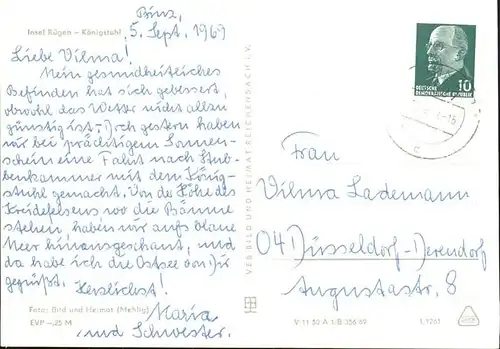 Binz,
Insel Rügen – Königstuhl
5. Sept. 1969
Liebe Vilma!
Mein gesundheitliches
Befinden hat sich gebessert,
obwohl das Wetter nicht allzu
günstig ist. Doch gestern haben
wir bei prächtigem Sonnen-
schein eine Fahrt nach Stub-
benkammer mit dem König-
stuhl gemacht. Von der Höhe des
Kreidefelsens wo die Bäume
stehen, haben wir aufs blaue
Meer hinausgeschaut, und
da habe ich die Ostsee von Dir
gegrüßt. Herzlichst!
Maria
und Schwester.
Foto: Bild und Heimat (Mehlig)
EVP –,25 M
VEB BILD UND HEIMAT REICHENBACH I. V.
V 11 50 A 1/B 356/69
1,1261
10
DEUTSCHE
DEMOKRATISCHE REPUBLIK
Frau
Vilma Lademann
(041) Düsseldorf-Derendorf
Augustastr. 8